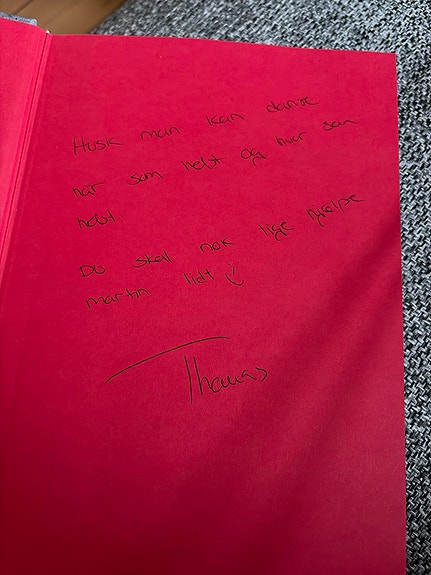 Husk man kan danse
når som helst og hvor som
helst
Du skal nok lige hjælpe
martin lidt :)
Thomas